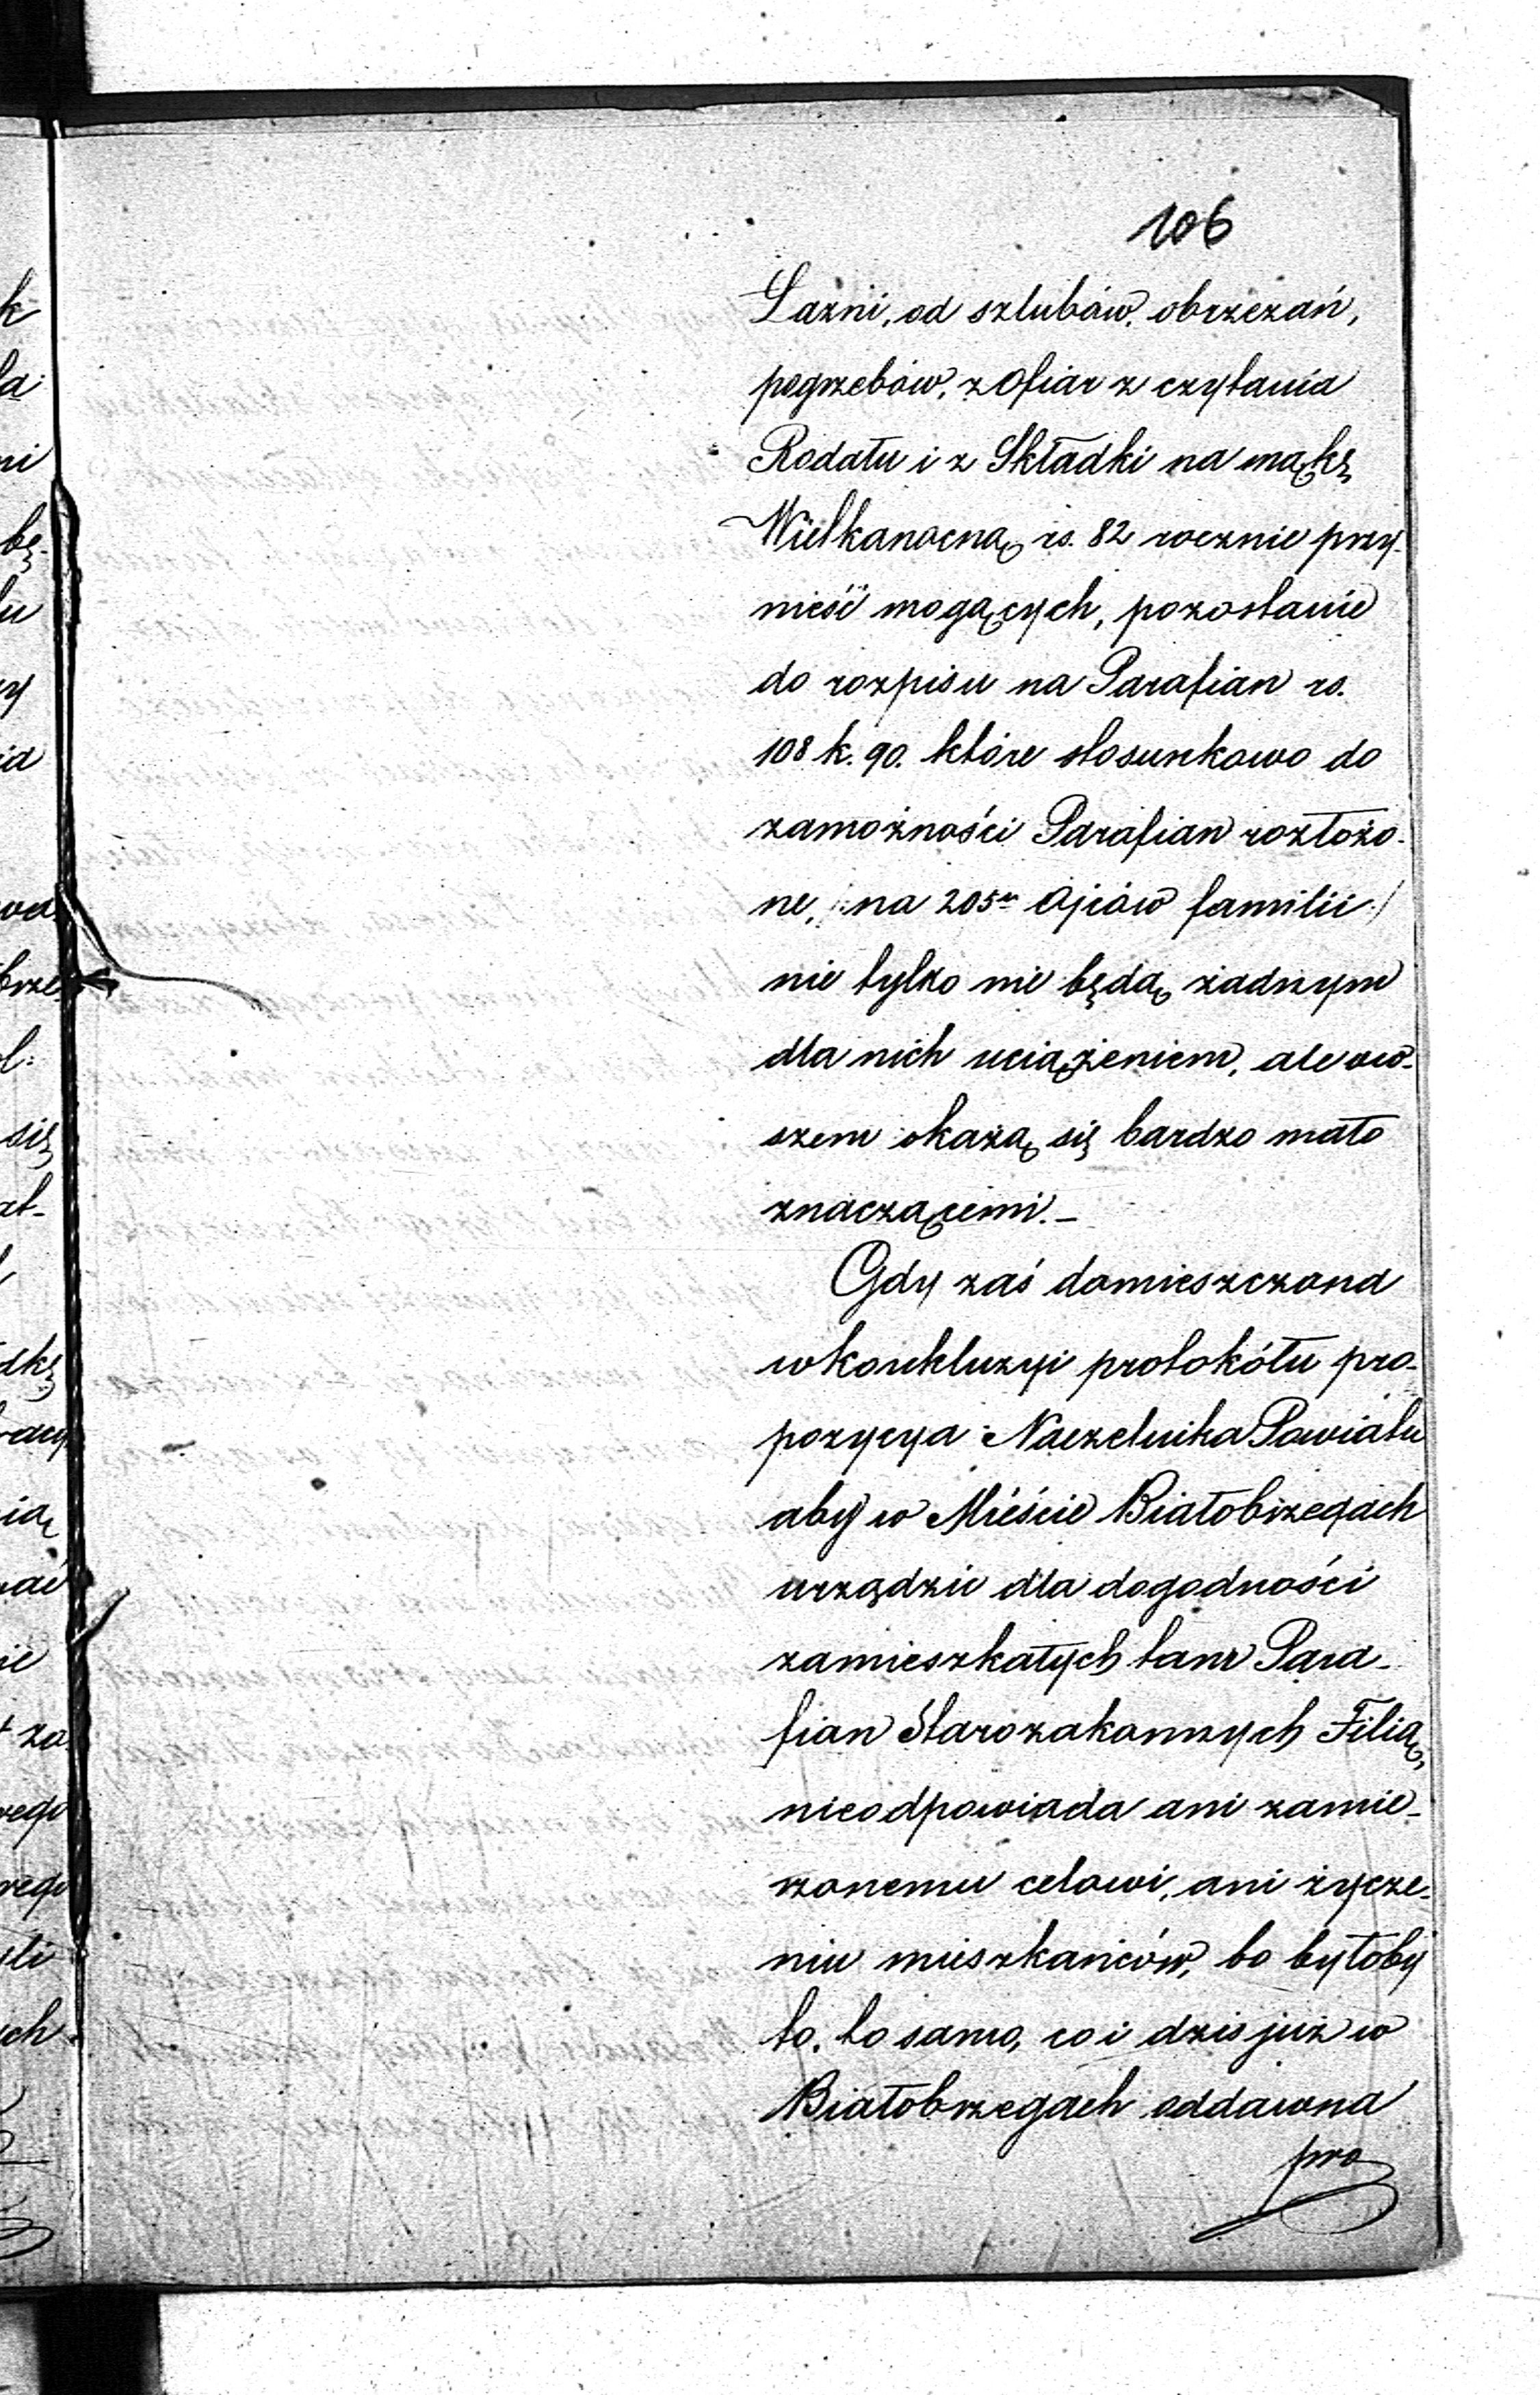 106
Łazni, od szlubów, obrzezań,
pogrzebów, z Ofiar z czytania
Rodału i z Składki na mąkę
Wielkanocną rs. 82 rocznie przy-
nieść mogących, pozostanie
do rozpisu na Parafian rs.
108 k. 90. które stosunkowo do
zamożności Parafian rozłożo-
ne, /: na 205m Ojców familii :/
nie tylko nie będą żadnym
dla nich uciążeniem, ale ow-
szem okażą się bardzo mało
znaczącemi. –
Gdy zaś domieszczona
w konkluzyi protokółu pro-
pozycya Naczelnika Powiatu
aby w Mieście Białobrzegach
urządzić dla dogodności
zamieszkałych tam Para-
fian Starozakonnych Filią,
nieodpowiada ani zamie-
rzonemu celowi, ani życze-
niu mieszkańców, bo byłoby
to, to samo, co i dzis już w
Białobrzegach oddawna
pro